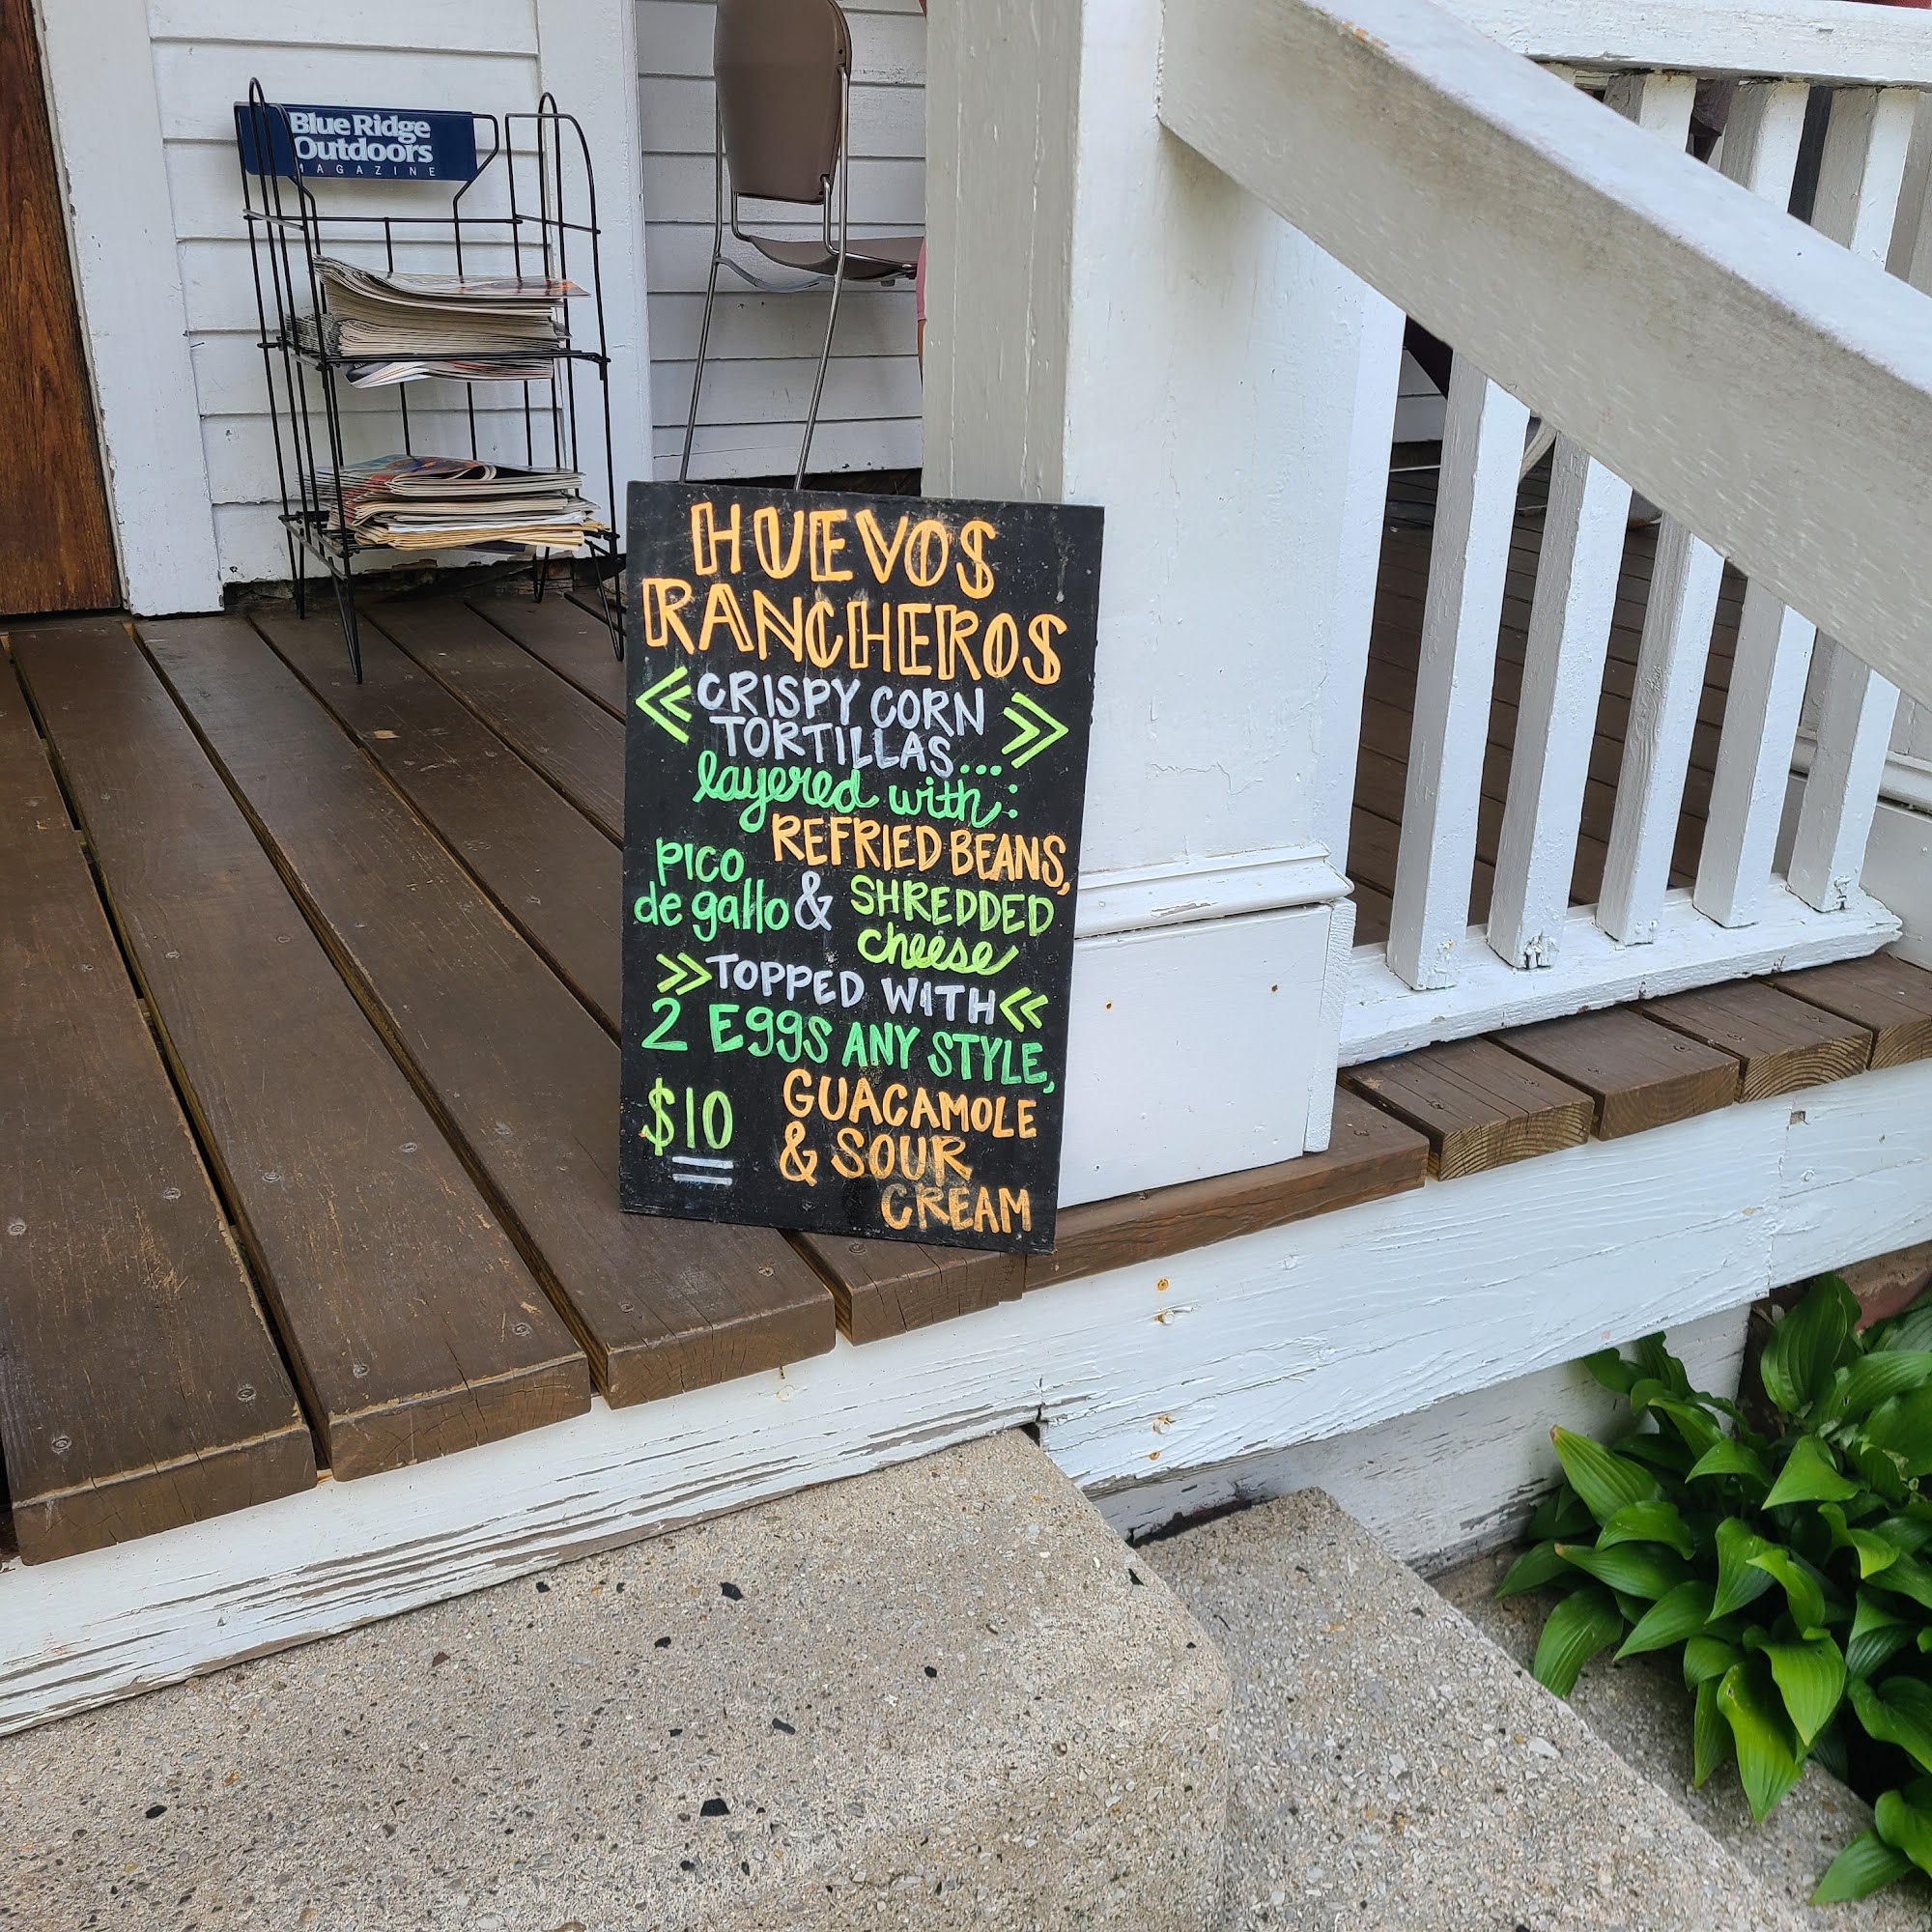 Blue Ridge
Outdoors
MAGAZINE
HUEVOS
RANCHEROS
<< CRISPY CORN >>
TORTILLAS...
layered with:
REFRIED BEANS,
pico
de gallo & SHREDDED
cheese
>> TOPPED WITH <<
2 EggS ANY STYLE,
$10 GUACAMOLE
& SOUR
CREAM